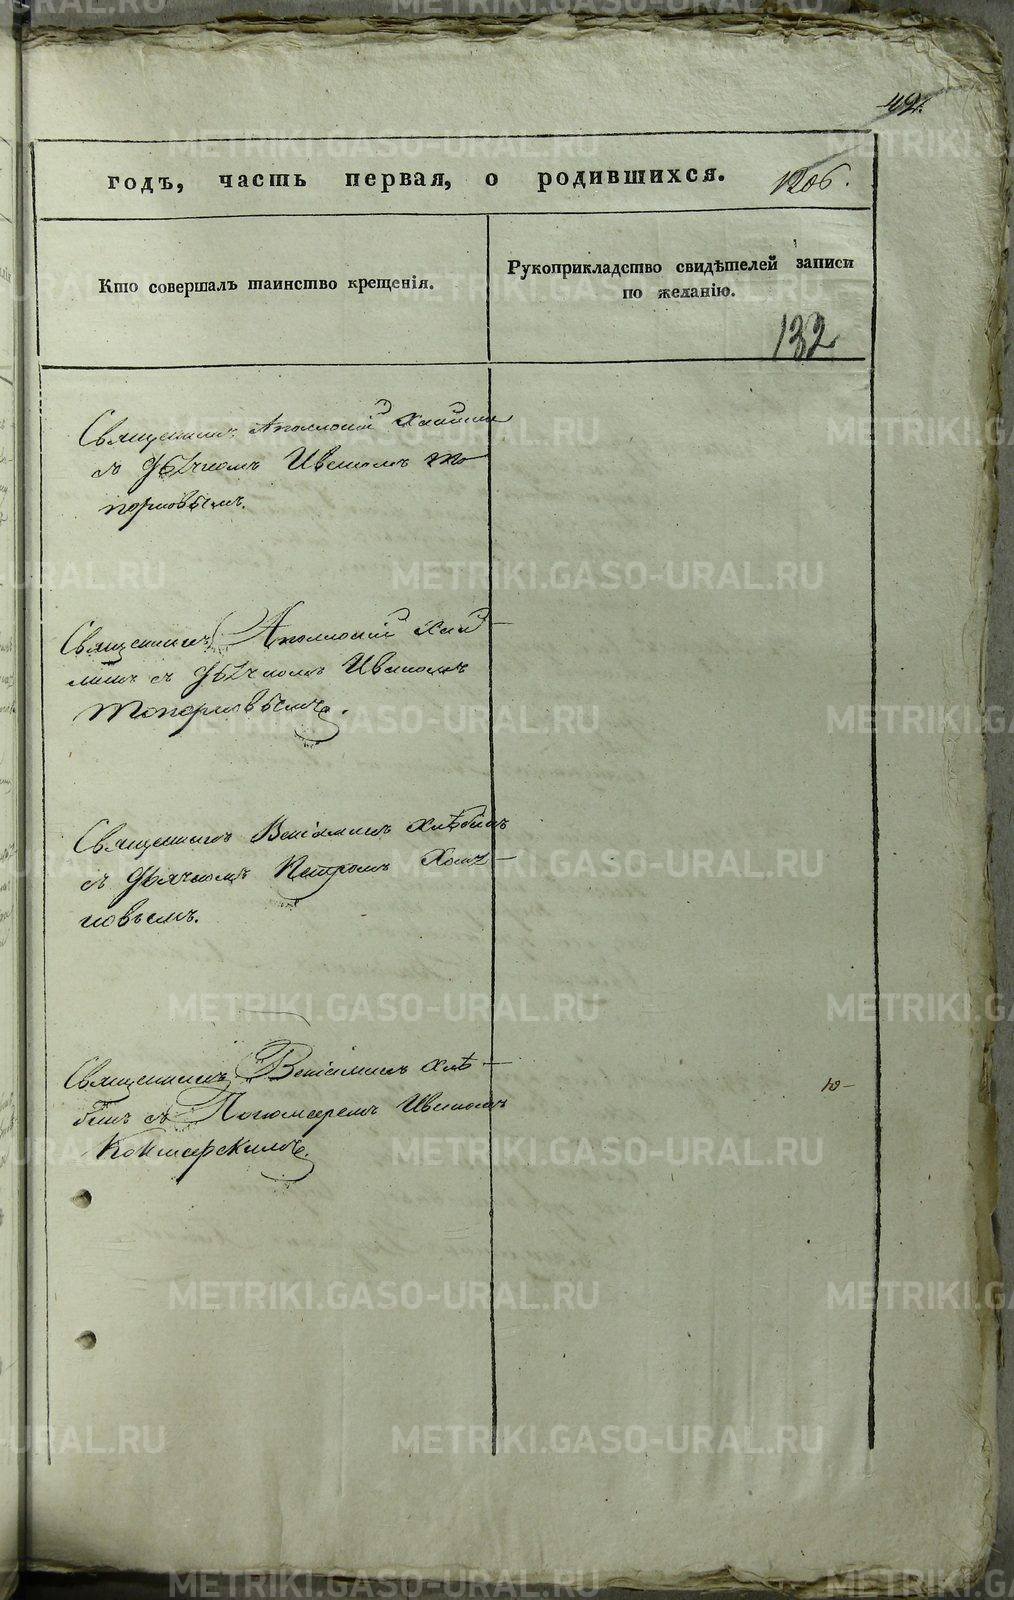 42.
годъ, часть первая, о родившихся.
1206.
Кто совершалъ таинство крещенія.
Рукоприкладство свидѣтелей записи
по желанію.
132
Священникъ Аполлоній
съ Дьячкомъ Иваномъ То
порковымъ.
Священникъ Аполлоній
съ Дьячкомъ Иваномъ
Топорковымъ.
Священникъ Веніаминъ Хлѣбинъ
съ Дьячкомъ Петромъ
новымъ.
Священникъ Веніаминъ Хлѣ-
бинъ съ Пономаремъ Иваномъ
Контарскимъ.
METRIKI.GASO-URAL.RU